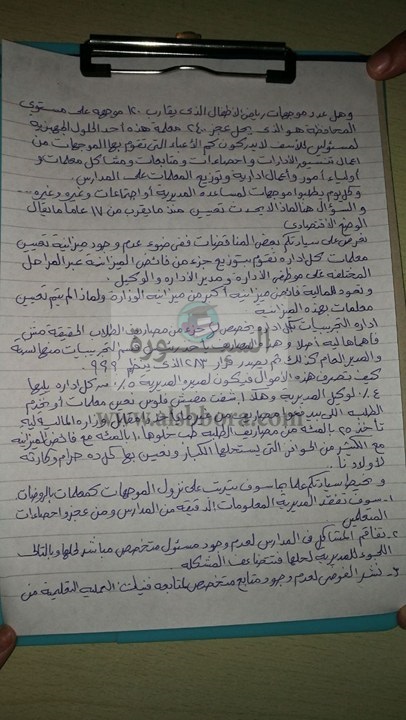 وهل عدد موجهات رياض الأطفال الذى يقارب ١٢٠ موجهه على مستوى
المحافظة هو الذى يحل عجز ٢٤٠ معلمه هذه أحد الحلول
لمسئولين للأسف لا يدركون كم الأعباء التى تقوم بها الموجهات من
أعمال تنسيق الادارات واحصاءات ومتابعات ومشاكل معلمات و
أولياء أمور وأعمال ادارية وتوزيع المعلمات على المدارس.
وكل يوم يطلبوا موجهات لمساعدة المديرية أو اجتماعات وغيره وغيره
والسؤال هنا لماذا لا يحدث تعيين منذ ما يقرب من ١٧ عاما ما يقال
الوضع الاقتصادى
نعرض على سيادتكم بعض المناقضات ففى ضوء عدم وجود ميزانية تعيين
معلمات كل ادارة تقوم بتوزيع جزء من فائض الميزانية عبر المراحل
المختلفة على موظفى الادارة ومدير الادارة والوكيل.
وتعود للمالية فائض ميزانية أكثر من ميزانية الوزارة ولماذا لم يتم تعيين
معلمات بهذه الميزانية
ادارة التجريبيات بكل ادارة يخصص لها جزء من مصاريف الطلاب
قسم التجريبيات منها لسرية
والمدير العام كذلك تم يصدر قرار ٢٨٣ الذى ينظم ٩٩٩
كيف تصرف هذه الأموال فيكون لمدير المديرية ٥٪ سر كل ادارة يليها
٤٪ لوكيل المديرية وهلا ! مفيش فلوس نعين معلمات أو نخدم
الطلبه اللى بيدفعوا مصاريف من وزارة المالية ليه
تاخد ٢٥ بالمئة من مصاريف الطلبه طب خلوها ١٠ بالمئة مع فائض الميزانية
مع الكثير من الحوافز التى يستحلها الكبار وتعين بها كل ده حرام وكارثة
لأولادنا..
ونحيط سيادتكم علما بما سوف يترتب على نزول الموجهات كمعلمات بالروضات
١- سوف تفتقد المديرية المعلومات الدقيقه من المدارس ومن عجز واحصاءات
المتعلمين
٢- تفاقم المشاكل فى المدارس لعدم وجود مسئول متخصص مباشر لحلها وبالتالى
اللجوء للمديرية لحلها فتتضاعف المشكله
٣- نشر الفوضى لعدم وجود متابع متخصص لمتابعة فنيات العملية التعليمية من
السبورة
www.alsbbora.com